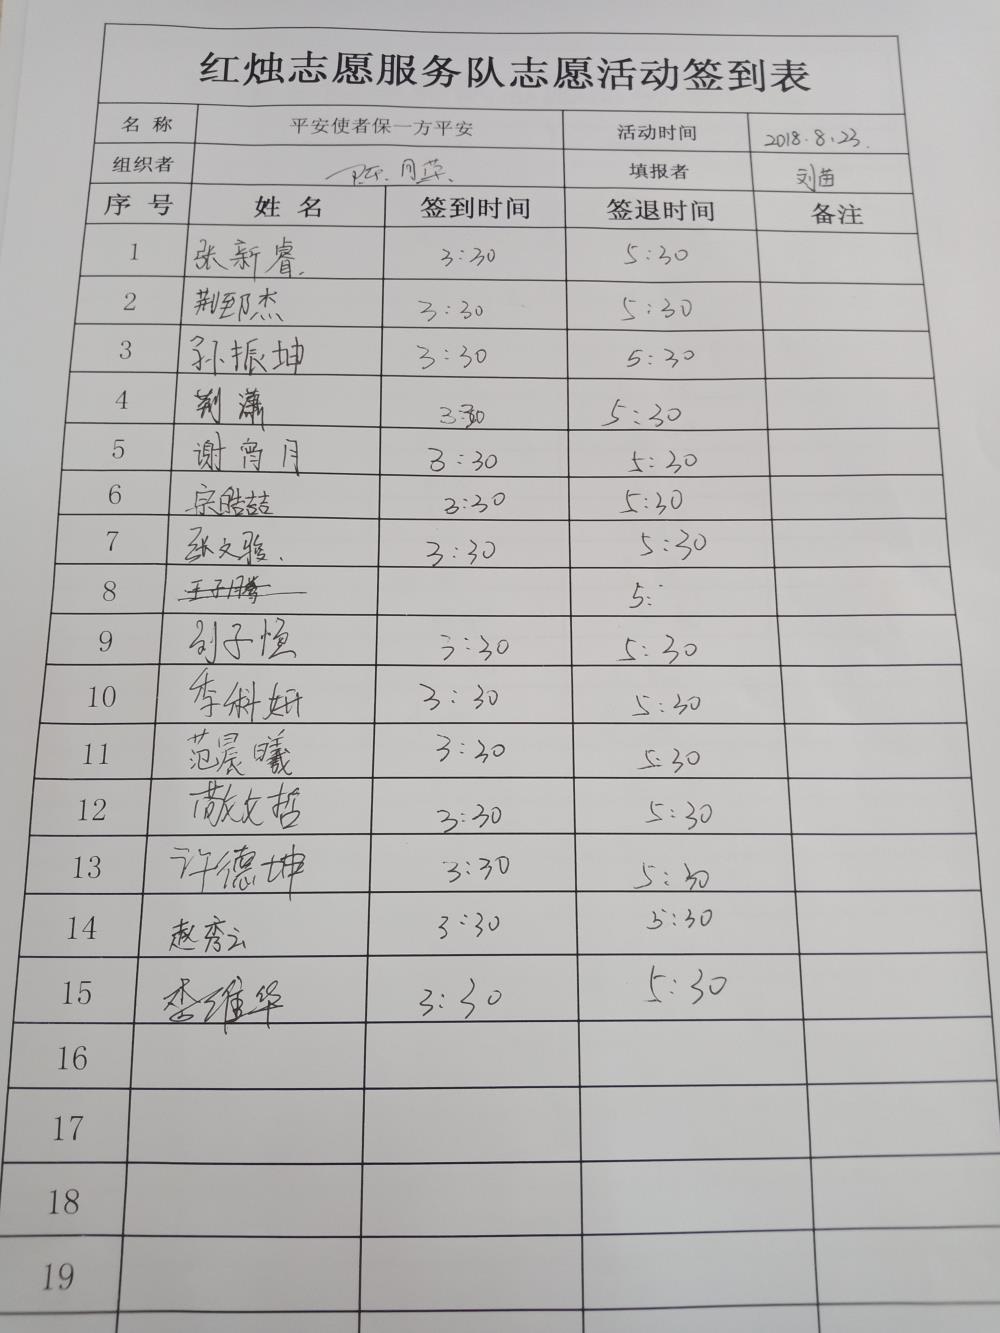 红烛志愿服务队志愿活动签到表
名 称 平安使者保一方平安 活动时间 2018.8.23.
组织者 月萍. 填报者 刘苗
序 号 姓 名 签到时间 签退时间 备注
1 张新睿. 3:30 5:30
2 荆郅杰 3:30 5:30
3 孙振坤 3:30 5:30
4 荆潇 3:30 5:30
5 谢宵月 3:30 5:30
6 宗皓喆 3:30 5:30
7 张文骏. 3:30 5:30
8 王子腾 5:
9 刘子恒 3:30 5:30
10 李科妍 3:30 5:30
11 范晨曦 3:30 5:30
12 文哲 3:30 5:30
13 许德坤 3:30 5:30
14 赵秀云 3:30 5:30
15 李维华 3:30 5:30
16
17
18
19